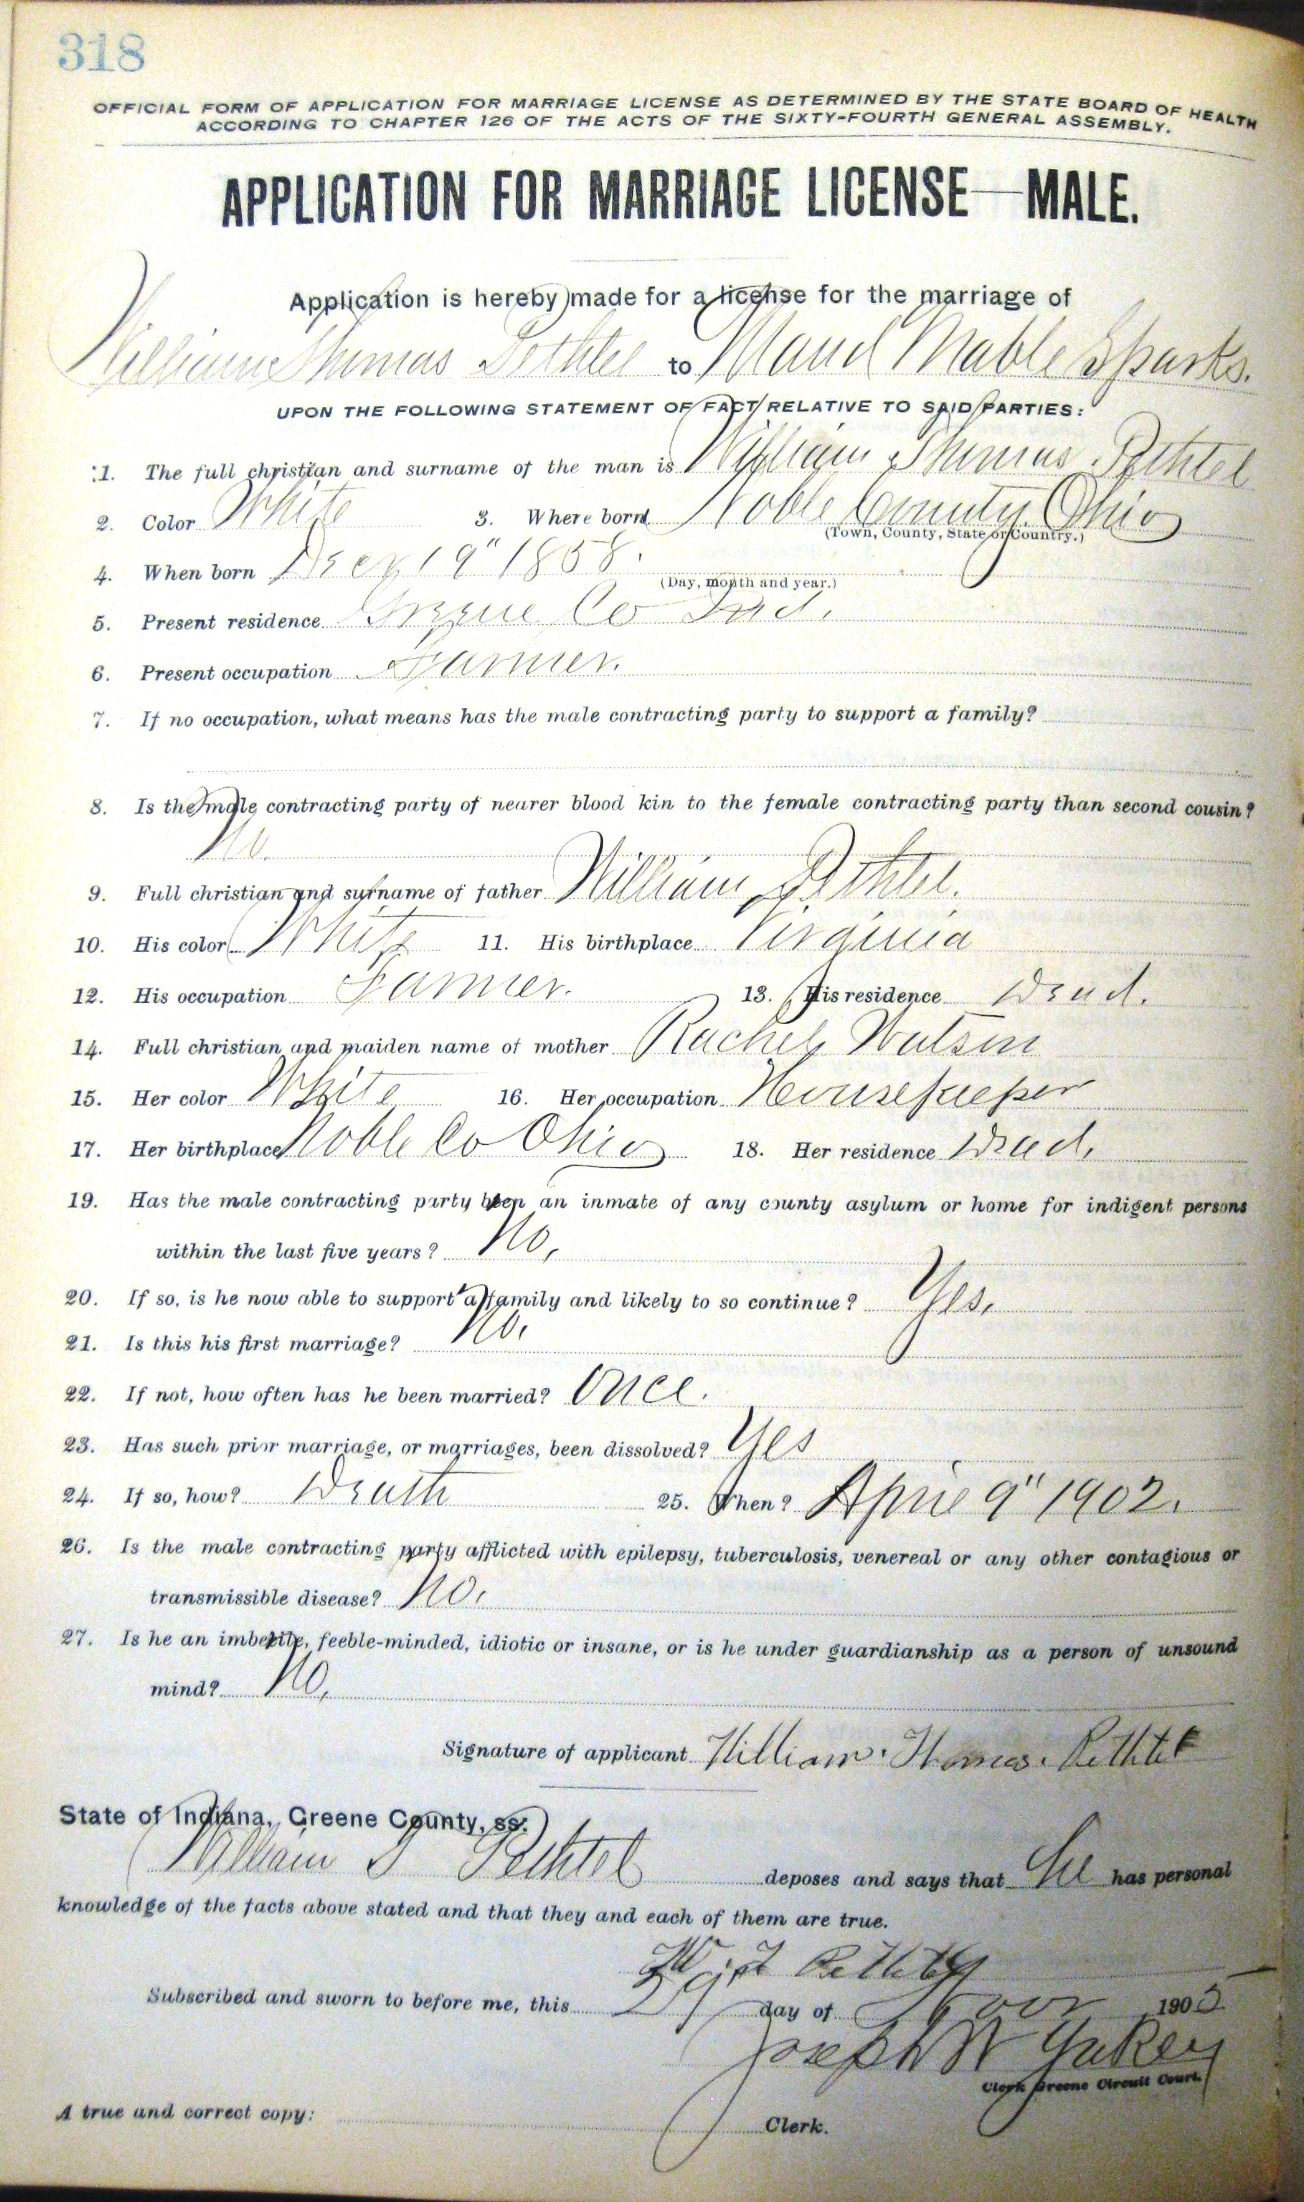 318
OFFICIAL FORM OF APPLICATION FOR MARRIAGE LICENSE AS DETERMINED BY THE STATE BOARD OF HEALTH
ACCORDING TO CHAPTER 126 OF THE ACTS OF THE SIXTY-FOURTH GENERAL ASSEMBLY.
APPLICATION FOR MARRIAGE LICENSE—MALE.
Application is hereby made for a license for the marriage of
William Thomas Pethtel to Maud Mable Sparks.
UPON THE FOLLOWING STATEMENT OF FACT RELATIVE TO SAID PARTIES:
1. The full christian and surname of the man is William Thomas Pethtel
2. Color White 3. Where born Noble County Ohio
(Town, County, State or Country.)
4. When born Decr 19" 1858.
(Day, month and year.)
5. Present residence Greene Co Ind.
6. Present occupation Farmer.
7. If no occupation, what means has the male contracting party to support a family?
8. Is the male contracting party of nearer blood kin to the female contracting party than second cousin?
No.
9. Full christian and surname of father William Pethtel.
10. His color White 11. His birthplace Virginia
12. His occupation Farmer. 13. His residence Dead.
14. Full christian and maiden name of mother Rachel Watson
15. Her color White 16. Her occupation Housekeeper
17. Her birthplace Noble Co Ohio 18. Her residence Dead.
19. Has the male contracting party been an inmate of any county asylum or home for indigent persons
within the last five years? No.
20. If so, is he now able to support a family and likely to so continue? Yes.
21. Is this his first marriage? No.
22. If not, how often has he been married? Once.
23. Has such prior marriage, or marriages, been dissolved? Yes
24. If so, how? Death 25. When? April 9" 1902.
26. Is the male contracting party afflicted with epilepsy, tuberculosis, venereal or any other contagious or
transmissible disease? No.
27. Is he an imbecile, feeble-minded, idiotic or insane, or is he under guardianship as a person of unsound
mind? No.
Signature of applicant William. Thomas. Pethtel
State of Indiana, Greene County, ss:
William T Pethtel deposes and says that he has personal
knowledge of the facts above stated and that they and each of them are true.
W. T Pethtel
Subscribed and sworn to before me, this 29" day of Nov 1905
Joseph W Yakey
Clerk Greene Circuit Court.
A true and correct copy:
Clerk.